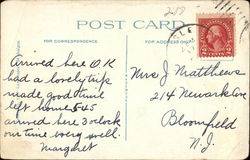 219
POST CARD
FOR CORRESPONDENCE
FOR ADDRESS
Arrived here O.K
had a lovely trip
made good time
left home 545
arrived here 3 oclock
our time every well.
Margaret
Mrs J Matthews
214 Newark Ave
Bloomfield
N.J.